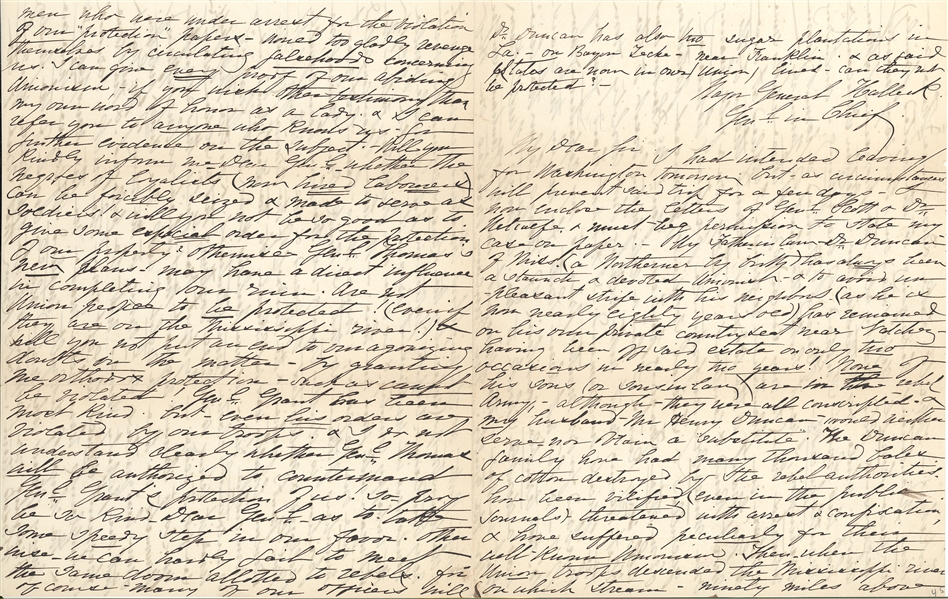 men who were under arrest for the violation
of our "protection" papers - would too gladly revenge
themselves by circulating falsehoods concerning
us. I can give every proof of our abiding
Unionism - if you wish other testimony than
my own word of honor as a lady. & I can
refer you to anyone who knows us for
further evidence on the subject - Will you
kindly inform me Dear Genl. whether the
negroes of loyalists (now hired labourers)
can be forcibly seized & made to serve as
soldiers? & will you not be so good as to
give some especial order for the protection
of our property? otherwise Genl. Thomas's
new plans - may have a direct influence
in completing our ruin. Are not
Union people to be protected? (even if
they are on the Mississippi river!) &
will you not put an end to our agonizing
doubts on the matter by granting
me orders & protection - such as cannot
be violated? Genl. Grant has been
most kind - but even his orders are
violated by our troops. & I do not
understand clearly whether Genl. Thomas
will be authorized to countermand
Genl. Grant's protection of us! So pray
be so kind Dear Genl. - as to take
some speedy step in our favor. Other
wise we can hardly fail to meet
the same doom allotted to rebels. for
of course many of our officers will
Dr. Duncan has also two sugar plantations in
La: - on Bayou Teche - near Franklin. & as said
Estates are now in our (Union) lines - can they not
be protected? -
Major General Halleck
Genl. in Chief
My Dear Sir, I had intended leaving
for Washington tomorrow but as circumstances
will prevent said trip for a few days - I
now enclose the letters of Genl. Scott & Dr.
Metcalfe & must beg permission to state my
case on paper. - My father in law Dr. Duncan
of Miss: (a Northerner by birth) has always been
a staunch & devoted Unionist. & to avoid un
pleasant strife with his neighbors (as he is
now nearly eighty years old) has remained
on his own private country seat near Natchez
having been off said estate on only two
occasions in nearly two years! None of
his sons (or sons in law) are in the rebel
Army - although they were all conscripted - &
my husband Mr. Henry Duncan would neither
serve nor obtain a "substitute". The Duncan
family have had many thousand bales
of cotton destroyed by the rebel authorities.
have been vilified (even in the public
Journals) - threatened with arrest & confiscation,
& have suffered peculiarly for their
well known Unionism. Then when the
Union troops descended the Mississippi river
on which stream - ninety miles above